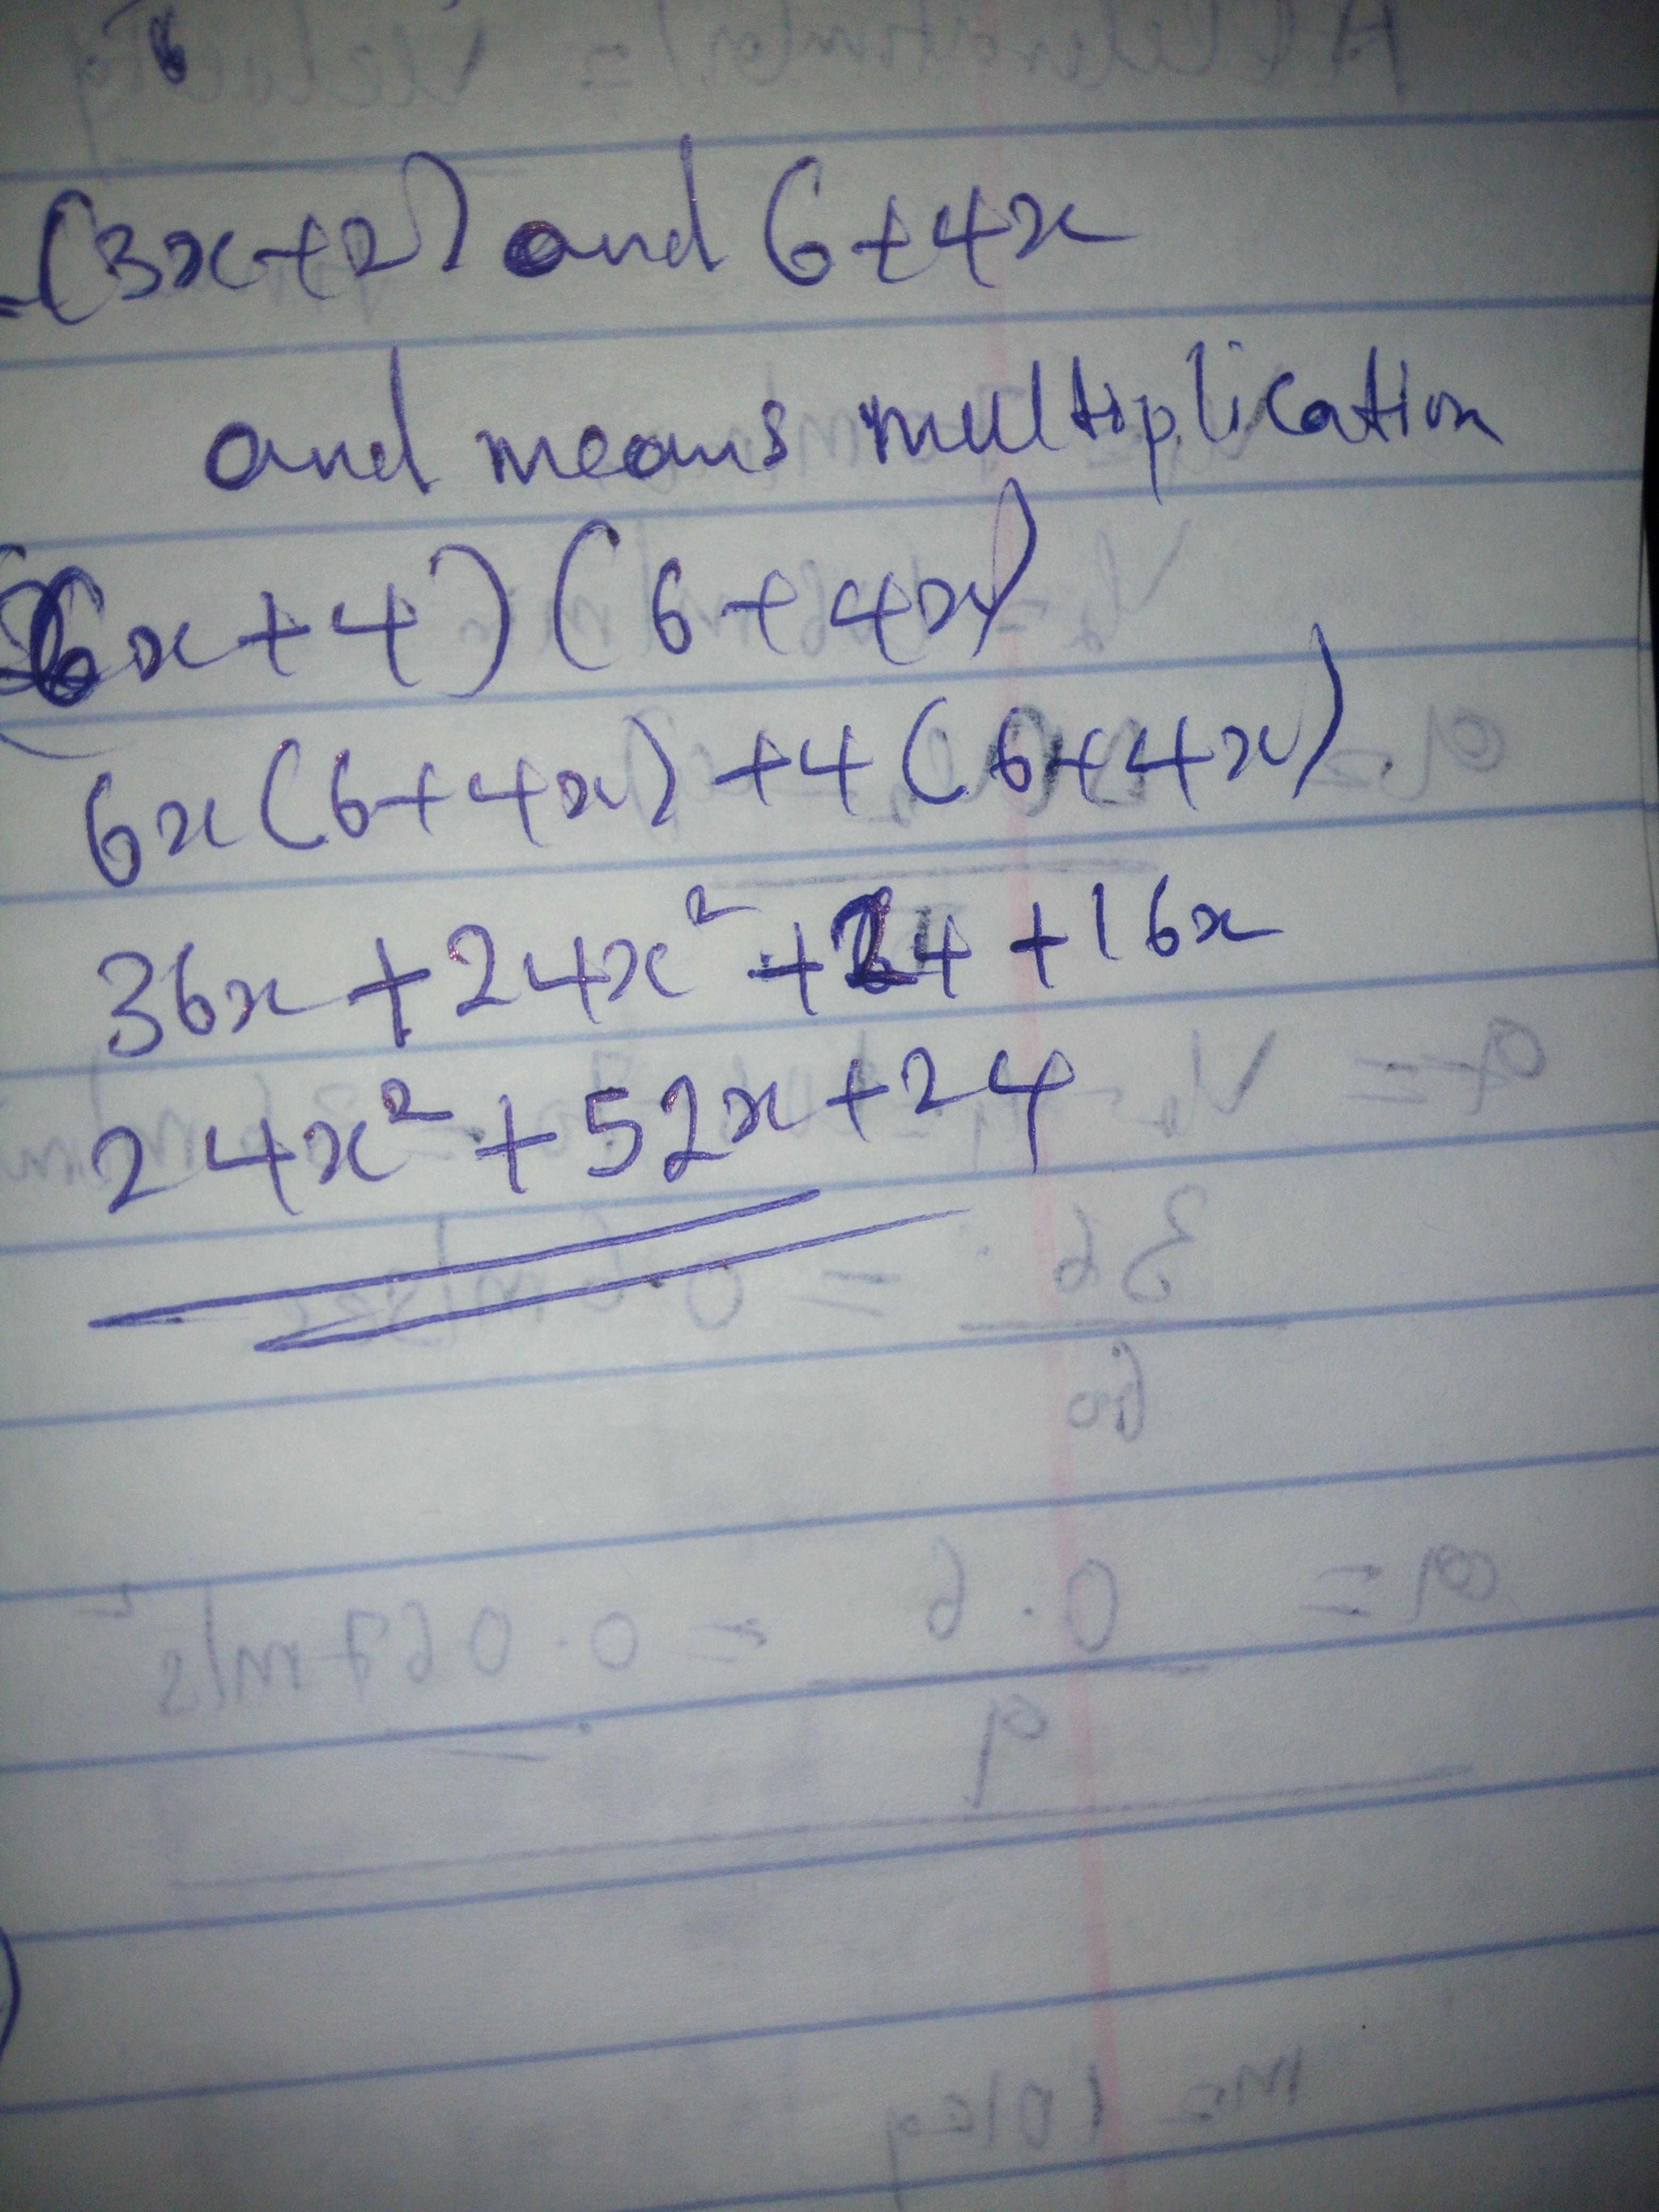 (3x+2) and 6+4x
and means multiplication
6x+4) (6+4x)
6x(6+4x) +4(6+4x)
36x+24x²+24+16x
24x²+52x+24